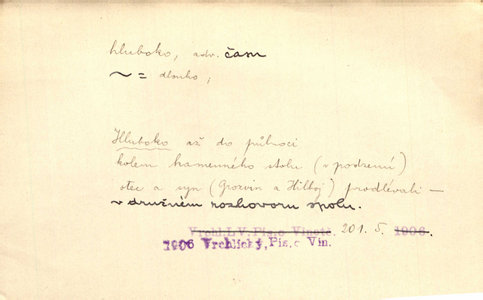 hluboko, adv. čas
~ = dlouho;
Hluboko až do půlnoci
kolem kamenného stolu (v podzemí)
otec a syn (Grozvin a Hilboj) prodlévali —
v družném rozhovoru spolu.
Vrchl.LV.Pís.o Vinetě. 201. 5. 1906.
1906 Vrchlický, Pís.o Vin.